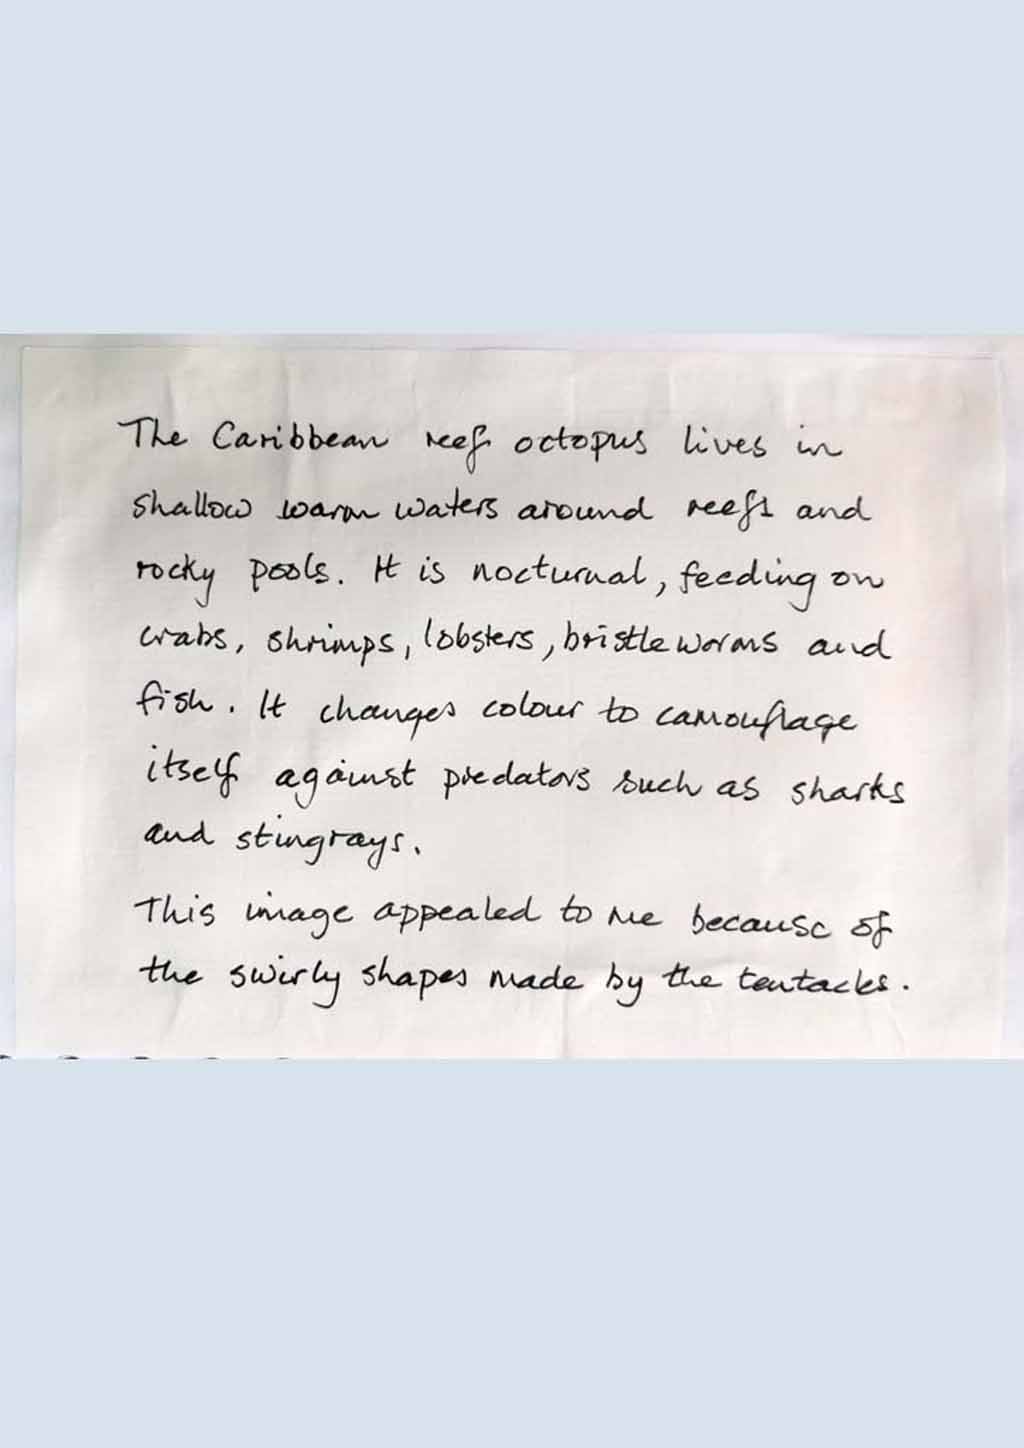 The Caribbean reef octopus lives in
shallow warm waters around reefs and
rocky pools. It is nocturnal, feeding on
crabs, shrimps, lobsters, bristle worms and
fish. It changes colour to camouflage
itself against predators such as sharks
and stingrays.
This image appealed to me because of
the swirly shapes made by the tentacles.